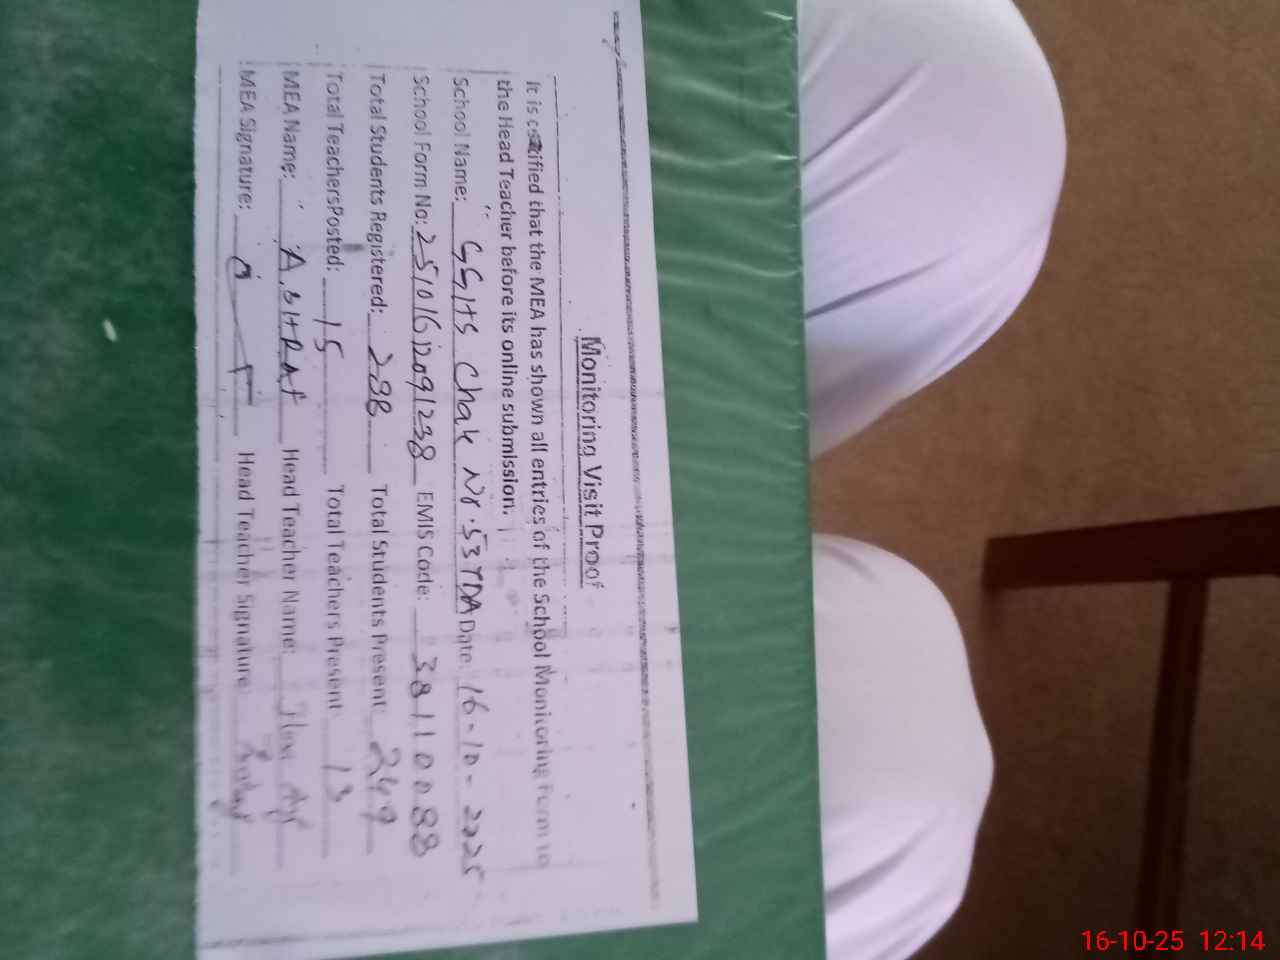 Monitoring Visit Proof
It is certified that the MEA has shown all entries of the School Monitoring Form to
the Head Teacher before its online submission.
School Name: GGHS Chak Nr. 53 TDA Date: 16-10-2025
School Form No: 25101612091238 EMIS Code: 38110088
Total Students Registered: 298 Total Students Present: 249
Total TeachersPosted: 15 Total Teachers Present 13
MEA Name: Head Teacher Name:
MEA Signature: Head Teacher Signature
16-10-25 12:14